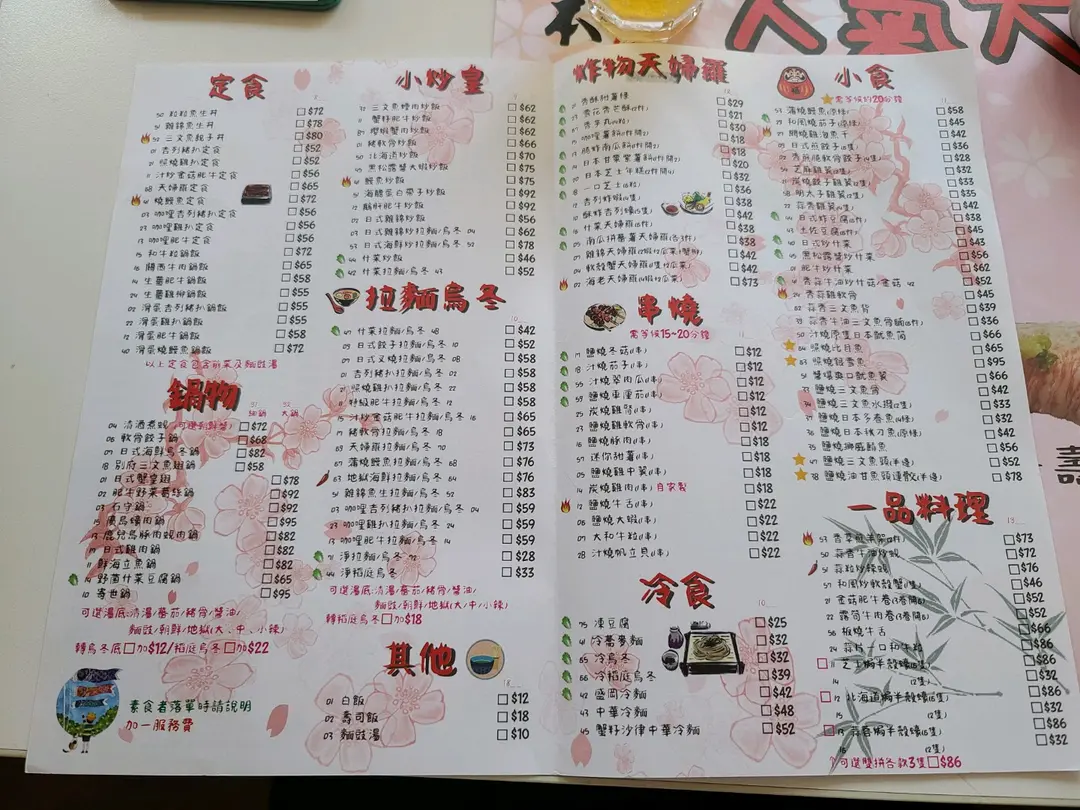 定食
粒粒魚生丼 $72
雜錦魚生丼 $78
三文魚親子丼 $80
01 吉列豬扒定食 $52
21 照燒雞扒定食 $52
11 汁炒金菇肥牛定食 $56
08 天婦羅定食 $65
燒鰻魚定食 $72
03 咖哩吉列豬扒定食 $56
23 咖哩雞扒定食 $56
13 咖哩肥牛定食 $56
15 和牛粒鍋飯 $72
16 關西牛肉鍋飯 $65
14 生薑肥牛鍋飯 $58
24 生薑雞柳鍋飯 $58
02 滑蛋吉列豬扒鍋飯 $55
22 滑蛋雞扒鍋飯 $55
12 滑蛋肥牛鍋飯 $58
40 滑蛋燒鰻魚鍋飯 $72
以上定食包含前菜及麵豉湯
鍋物
細鍋 大鍋
04 清酒煮蜆 $72
06 軟骨餃子鍋 $68
07 日式海鮮烏冬鍋 $82
18 別府三文魚翅鍋 $58
01 日式蟹皇翅 $78
02 肥牛野菜薯絲鍋 $92
03 石字鍋 $92
15 廣島蠔肉鍋 $95
13 鹿兒島豚肉蜆肉鍋 $82
17 日式雞肉鍋 $82
11 鮮海立魚鍋 $82
14 野菌什菜豆腐鍋 $65
10 寄世鍋 $95
可選湯底:清湯/蕃茄/豬骨/醬油/
麵豉/朝鮮/地獄(大、中、小辣)
轉烏冬底 加$12/稻庭烏冬 加$22
素食者落單時請說明
加一服務費
小炒皇
三文魚蠔肉炒飯 $62
蟹籽肥牛炒飯 $62
櫻蝦蟹肉炒飯 $62
豬軟骨炒飯 $66
北海道炒飯 $70
黑松露蟹大蝦炒飯 $75
鰻魚炒飯 $75
海膽蛋白帶子炒飯 $92
鵝肝肥牛炒飯 $92
02 日式雜錦炒飯 $56
03 日式雜錦炒拉麵/烏冬 04 $62
53 日式海鮮炒拉麵/烏冬 52 $78
44 什菜炒飯 $46
42 什菜拉麵/烏冬 43 $52
拉麵烏冬
47 什菜拉麵/烏冬 48 $42
09 日式餃子拉麵/烏冬 10 $52
07 日式叉燒拉麵/烏冬 08 $58
01 吉列豬扒拉麵/烏冬 02 $58
21 照燒雞扒拉麵/烏冬 22 $58
11 特級肥牛拉麵/烏冬 12 $58
15 汁炒金菇肥牛拉麵/烏冬 16 $65
17 豬軟骨拉麵/烏冬 18 $65
69 天婦羅拉麵/烏冬 70 $73
67 蒲燒鰻魚拉麵/烏冬 68 $76
63 地獄海鮮拉麵/烏冬 64 $76
51 雜錦魚生拉麵/烏冬 52 $83
03 咖哩吉列豬扒拉麵/烏冬 04 $59
23 咖哩雞扒拉麵/烏冬 24 $59
13 咖哩肥牛拉麵/烏冬 14 $59
71 淨拉麵/烏冬 72 $28
44 淨稻庭烏冬 $33
可選湯底:清湯/蕃茄/豬骨/醬油/
麵豉/朝鮮/地獄(大/中/小辣)
轉稻庭烏冬 加$18
其他
01 白飯 $12
02 壽司飯 $18
03 麵豉湯 $10
炸物天婦羅
香酥甜薯條 $29
$21
$30
咖哩薯粉(1件開2) $18
脆炸南瓜餅(1件開2) $18
日本甘栗紫薯餅(1件開2) $20
日本芝士年糕(2件開4) $32
一口芝士(6粒) $36
吉列炸蝦(4隻) $38
酥炸吉列蠔(5隻) $42
什菜天婦羅(6件) $38
南瓜拼蕃薯天婦羅(各3件) $38
雜錦天婦羅 $42
軟殼蟹天婦羅 $42
海老天婦羅 $73
串燒
需等候15~20分鐘
鹽燒冬菇(1串) $12
汁燒茄子(1串) $12
汁燒翠肉瓜(1串) $12
鹽燒車厘茄(1串) $12
炭燒雞腎(1串) $12
鹽燒雞軟骨(1串) $12
鹽燒豚肉(1串) $18
迷你甜薯(1串) $18
鹽燒雞中翼(1串) $18
炭燒雞肉(1串)自家製 $18
鹽燒牛舌(1串) $22
鹽燒大蝦(1串) $22
大和牛粒(1串) $22
汁燒帆立貝(1串) $22
冷食
95 凍豆腐 $25
41 冷蕎麥麵 $32
65 冷烏冬 $32
66 冷稻庭烏冬 $39
42 盛岡冷麵 $42
43 中華冷麵 $48
45 蟹籽沙律中華冷麵 $52
小食
需等候約20分鐘
蒲燒鰻魚(原條) $58
和風燒茄子(原條) $45
關燒雞泡魚干 $42
日式煎餃子(6件) $36
香煎脆軟骨餃子(4隻) $28
芝麻雞翼(2隻) $32
炭燒餃子雞翼(2隻) $44
明太子雞翼(2隻) $35
蒜香雞翼(4隻) $42
日式炸豆腐(6件) $38
土佐豆腐(6件) $45
日式炒什菜 $43
黑松露醬炒什菜 $56
肥牛炒什菜 $62
香蒜牛油炒什菇/金菇 42 $52
香蒜雞軟骨 $45
蒜香三文魚 $39
蒜香牛油三文魚骨腩(6件) $36
汁燒原隻日本魷魚筒 $66
照燒比目魚 $65
照燒銀鱈魚 $95
蟹場爽口魷魚鬚 $66
鹽燒三文魚骨 $42
鹽燒三文魚水撥(2隻) $33
鹽燒日本多春魚(4條) $32
鹽燒日本秋刀魚(原條) $42
鹽燒挪威鯖魚 $56
鹽燒三文魚頭(半邊) $52
鹽燒油甘魚頭連鮫(半邊) $78
一品料理
$73
蒜香牛油炒蜆 $72
蒜粒炒辣蜆 $76
和風炒軟殼蟹(1隻) $46
金菇肥牛卷(3卷開6) $52
露筍牛肉卷(3卷開6) $52
板燒牛舌 $66
蒜片一口和牛粒 $86
芝士焗半殼蠔(6隻) $86
(2隻) $32
北海道焗半殼蠔(6隻) $86
(2隻) $32
蒜蓉焗半殼蠔(6隻) $86
(2隻) $32
可選雙拼各款3隻 $86